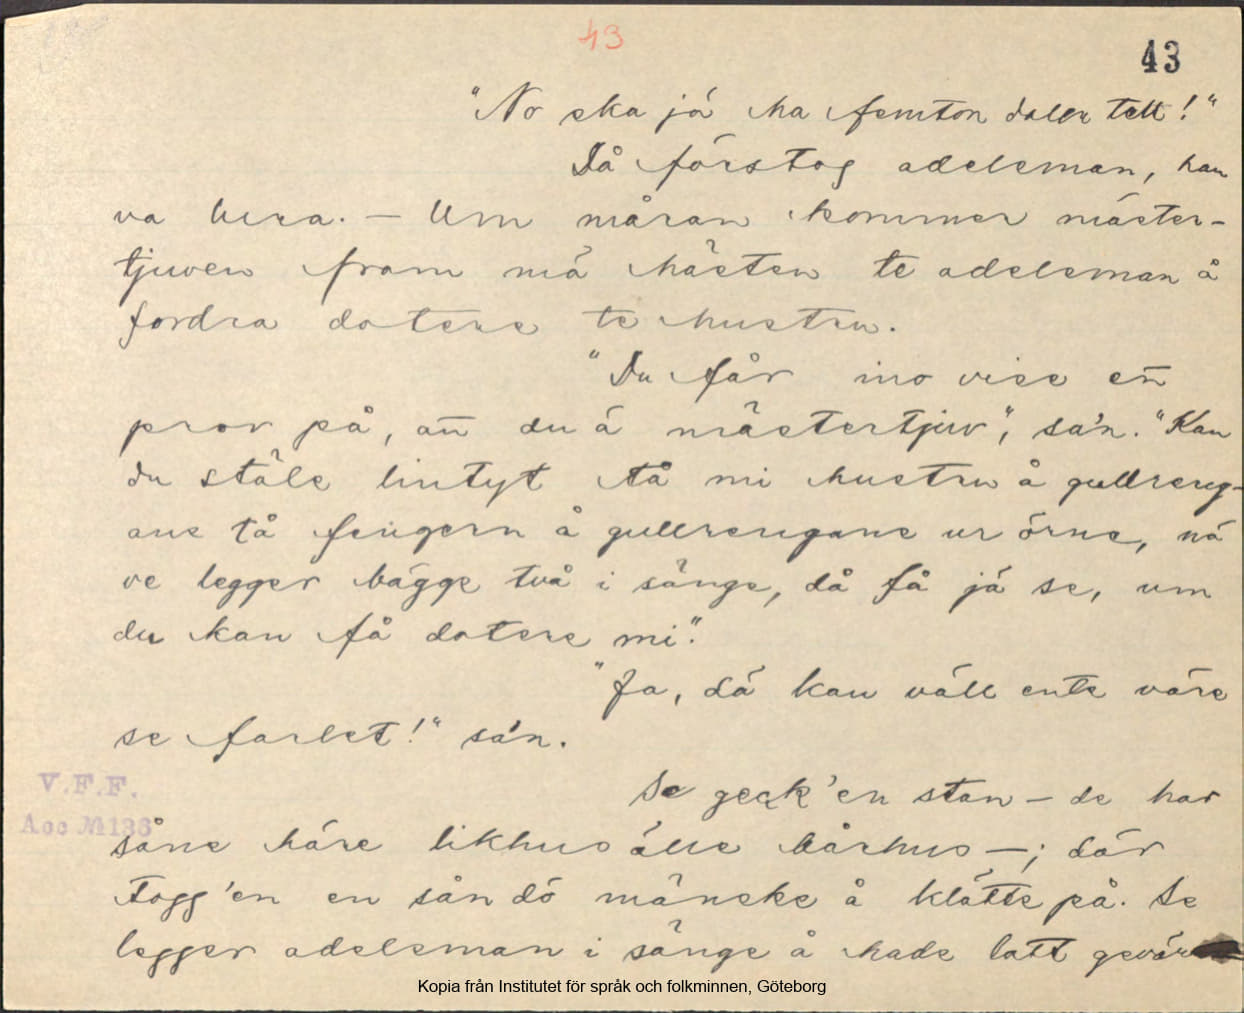 43
43
"No ska já ha femton daler tell!"
Då förstog adeleman, han
va lura. — Um måran kommer mäster-
tjuven fram mä hästen te adeleman å
fordra dotere te hustru.
"Du får ino vise en̄
prov på, an̄ du á mästertjuv", sa'n. "Kan
du stäle lintyt tå mi hustru å gullreng-
ane tå fingern å gullrengane ur örne, nä
ve legger bägge två i sänge, då få já se, um
du kan få dotere mi."
"Ja, dä kan väll ente väre
se farlet!" sa'n.
Se geck'en stan — de har
såne häre likhus älle bårhus —; där
togg'en en sån dö mänske å klätte på. Se
legger adeleman i sänge å hade latt gevär
V.F.F.
Acc № 136
Kopia från Institutet för språk och folkminnen, Göteborg